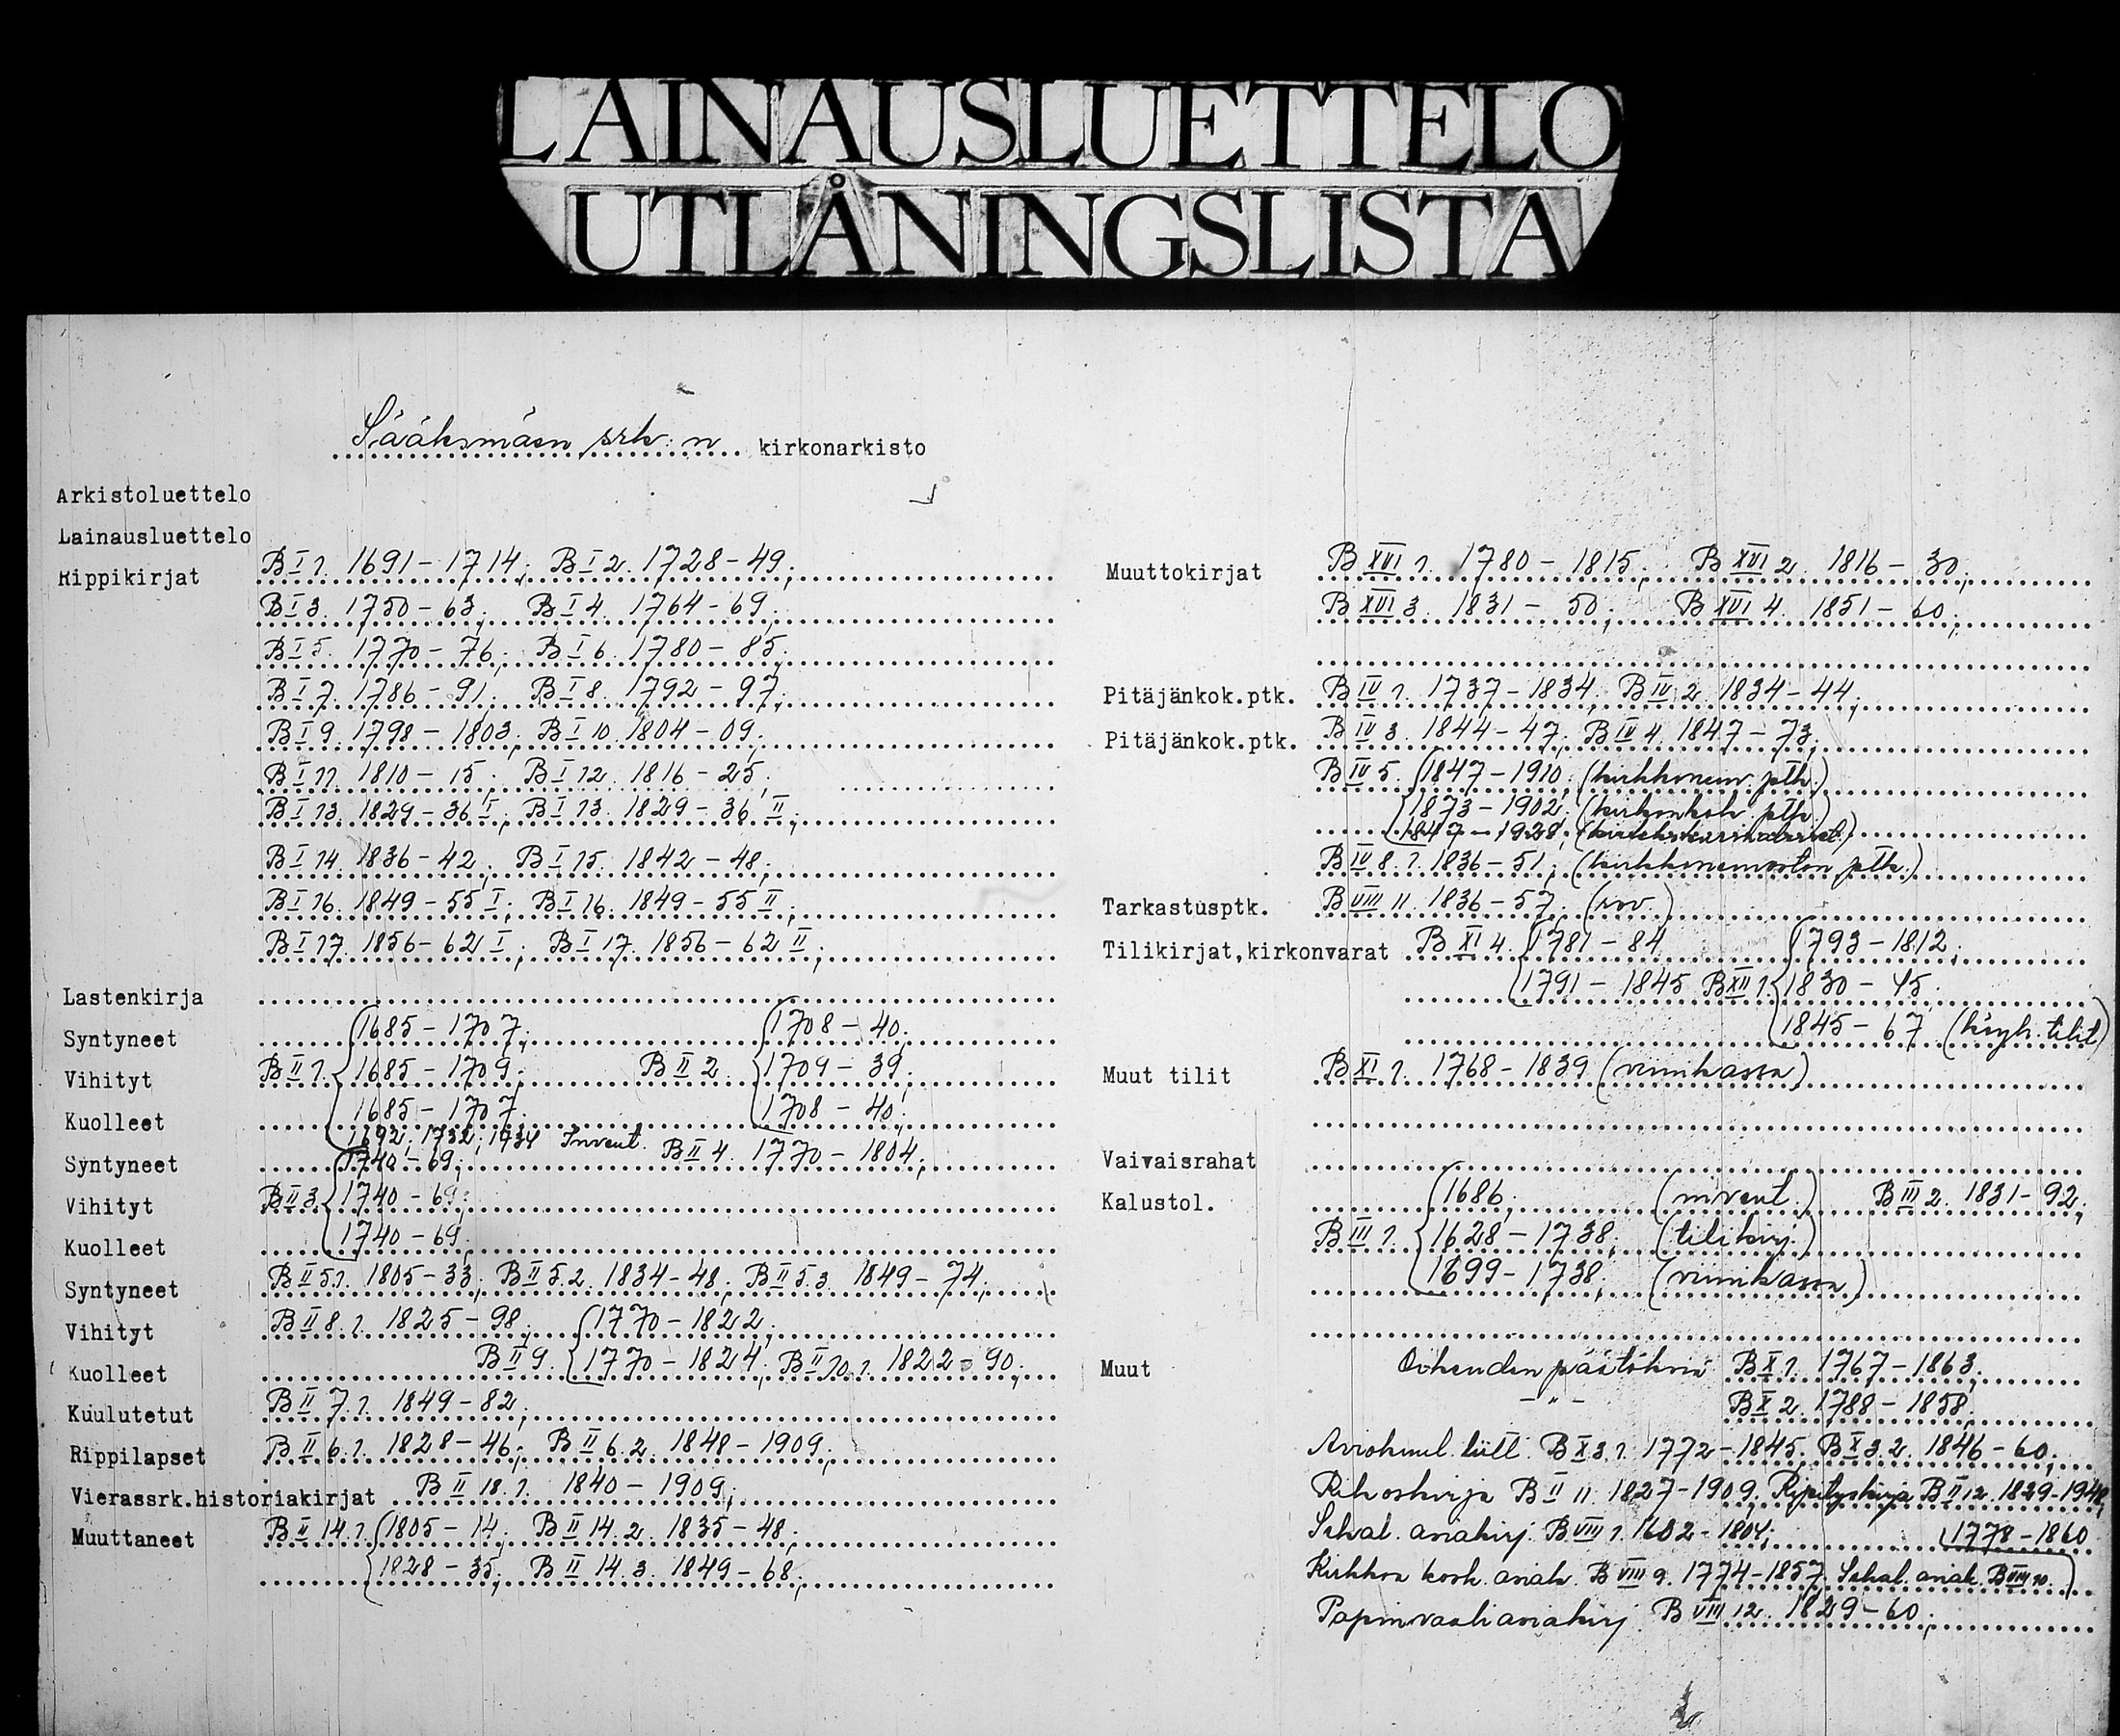 LAINAUSLUETTELO
UTLÅNINGSLISTA
Sääksmäen srk:n kirkonarkisto
Arkistoluettelo
Lainausluettelo
Rippikirjat B I 1. 1691-1714; B I 2. 1728-49;
B I 3. 1750-63; B I 4. 1764-69;
B I 5. 1770-76; B I 6. 1780-85;
B I 7. 1786-91; B I 8. 1792-97;
B I 9. 1798-1803; B I 10. 1804-09;
B I 11. 1810-15; B I 12. 1816-25;
B I 13. 1829-36 I; B I 13. 1829-36 II;
B I 14. 1836-42; B I 15. 1842-48;
B I 16. 1849-55 I; B I 16. 1849-55 II;
B I 17. 1856-62 I; B I 17. 1856-62 II;
Lastenkirja
Syntyneet 1685-1707; 1708-40;
Vihityt B II 1. 1685-1709; B II 2. 1709-39;
Kuolleet 1685-1707; 1708-40;
1692; 1732; 1734 Invent.
Syntyneet 1740-69; B II 4. 1770-1804;
Vihityt B II 3. 1740-69;
Kuolleet 1740-69;
Syntyneet B II 5.1. 1805-33; B II 5.2. 1834-48; B II 5.3. 1849-74;
Vihityt B II 8.1. 1825-98; 1770-1822;
Kuolleet B II 9. 1770-1824; B II 10.1. 1822-90;
Kuulutetut B II 7.1. 1849-82;
Rippilapset B II 6.1. 1828-46; B II 6.2. 1848-1909;
Vierassrk.historiakirjat B II 18.1. 1840-1909;
Muuttaneet B II 14.1. 1805-14; B II 14.2. 1835-48;
1828-35; B II 14.3. 1849-68;
Muuttokirjat B XVI 1. 1780-1815; B XVI 2. 1816-30;
B XVI 3. 1831-50; B XVI 4. 1851-60;
Pitäjänkok.ptk. B IV 1. 1737-1834; B IV 2. 1834-44;
Pitäjänkok.ptk. B IV 3. 1844-47; B IV 4. 1847-73;
B IV 5. 1847-1910; (kirkkoneuv. ptk.)
1873-1902; (kirkonkok. ptk.)
1847-1928;
B IV 8.1. 1836-51; (kirkkoneuvoston ptk.)
Tarkastusptk. B VIII 11. 1836-57;
Tilikirjat,kirkonvarat B XI 4. 1781-84 1793-1812;
1791-1845 B XII 1. 1830-45;
1845-67 (köyh. tilit)
Muut tilit B XI 1. 1768-1839 (viinikassa)
Vaivaisrahat
Kalustol. 1686; (invent.) B III 2. 1831-92;
B III 1. 1628-1738; (tilikirj.)
1699-1738; (viinikassa)
Muut Oikeuden päätöksiä B X 1. 1767-1863;
-"- B X 2. 1788-1858;
Aviokuul. luett. B X 3.1. 1772-1845; B X 3.2. 1846-60;
Rikoskirja B II 11. 1827-1909; Ripityskirja B II 12. 1829-1948;
Sekal. asiakirj. B VIII 1. 1602-1804; 1778-1860
Kirkkoa kosk. asiak. B VIII 9. 1774-1857; Sekal. asiak. B VIII 10.
Papinvaaliasiakirj. B VIII 12. 1829-60;